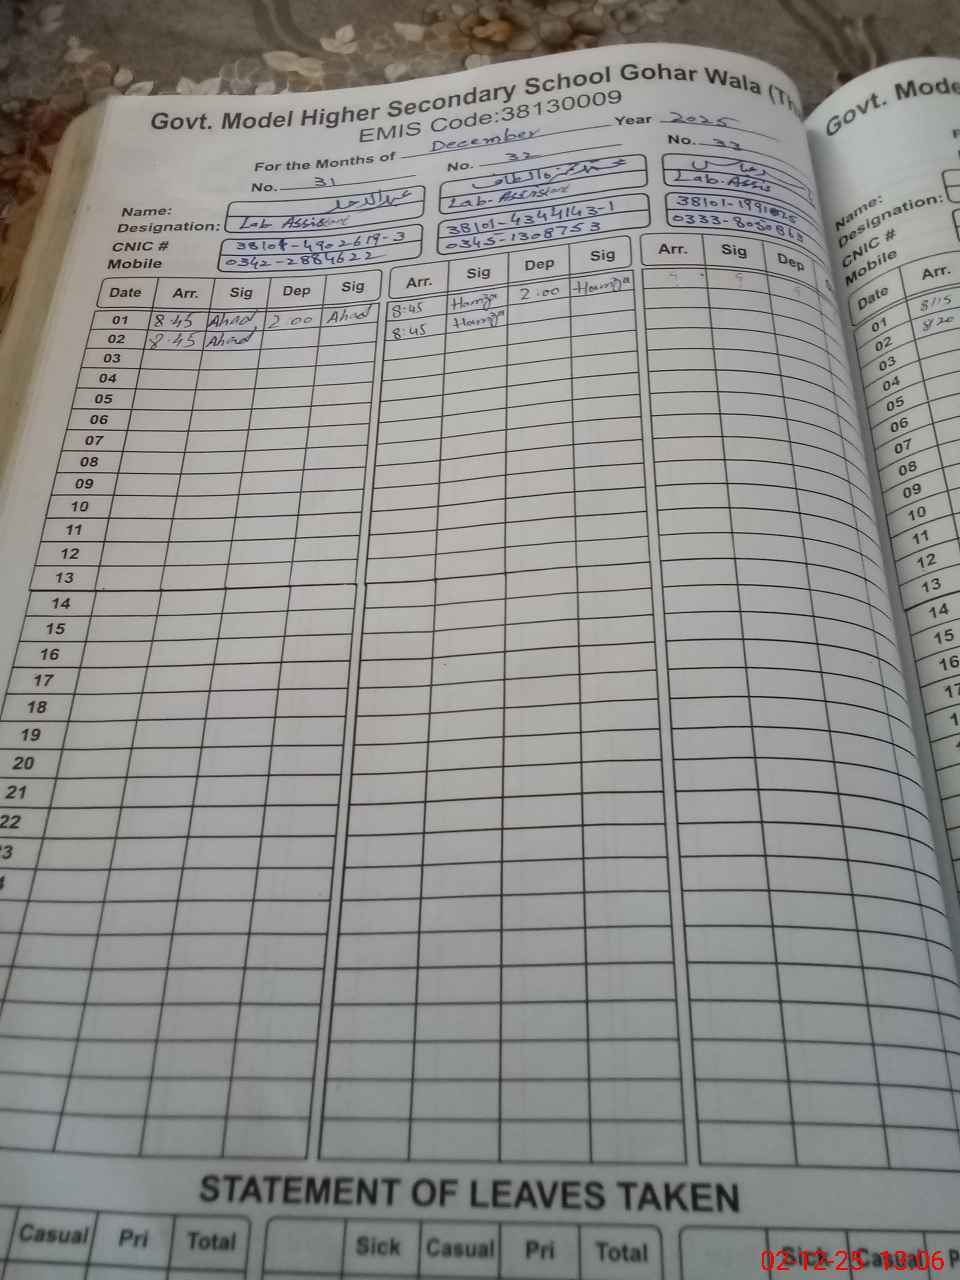 Govt. Model Higher Secondary School Gohar Wala
EMIS Code:38130009
For the Months of December Year 2025
No. 31 No. 32 No. 33
Name: عبدالاحد
Designation: Lab Assistant Lab-Assistant Lab-Assis
CNIC # 38101-4902619-3 38101-4344143-1 38101-1991
Mobile 0342-2884622 0345-1308753 0333-8050863
Date Arr. Sig Dep Sig Arr. Sig Dep Sig Arr. Sig Dep
01 8:45 Ahad 2:00 Ahad 8:45 Hamza 2:00 Hamza
02 8:45 Ahad 8:45 Hamza
03
04
05
06
07
08
09
10
11
12
13
14
15
16
17
18
19
20
21
22
STATEMENT OF LEAVES TAKEN
Casual Pri Total Sick Casual Pri Total Sick Casual
Govt. Mode
Name:
Designation:
CNIC #
Mobile
Date Arr.
01 8:15
02 8:20
03
04
05
06
07
08
09
10
11
12
13
14
15
16
02-12-25 13:06